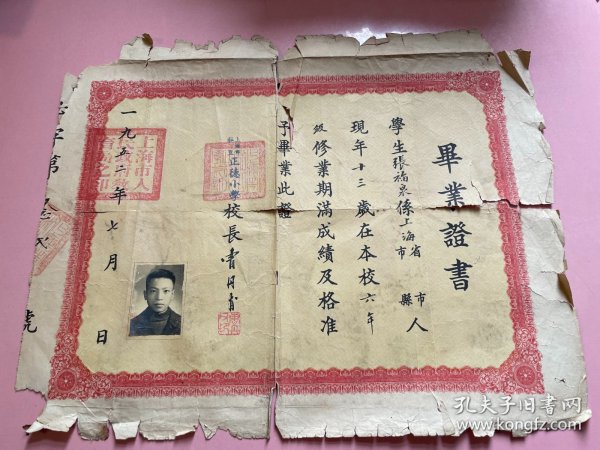 畢業證書
學生張福泉係上海省市 市縣人
現年十三歲在本校六年
級修業期滿成績及格准
予畢業此證
正德小學校長
一九五二年七月 日
上海市人
字第
號
孔夫子旧书网
www.kongfz.com